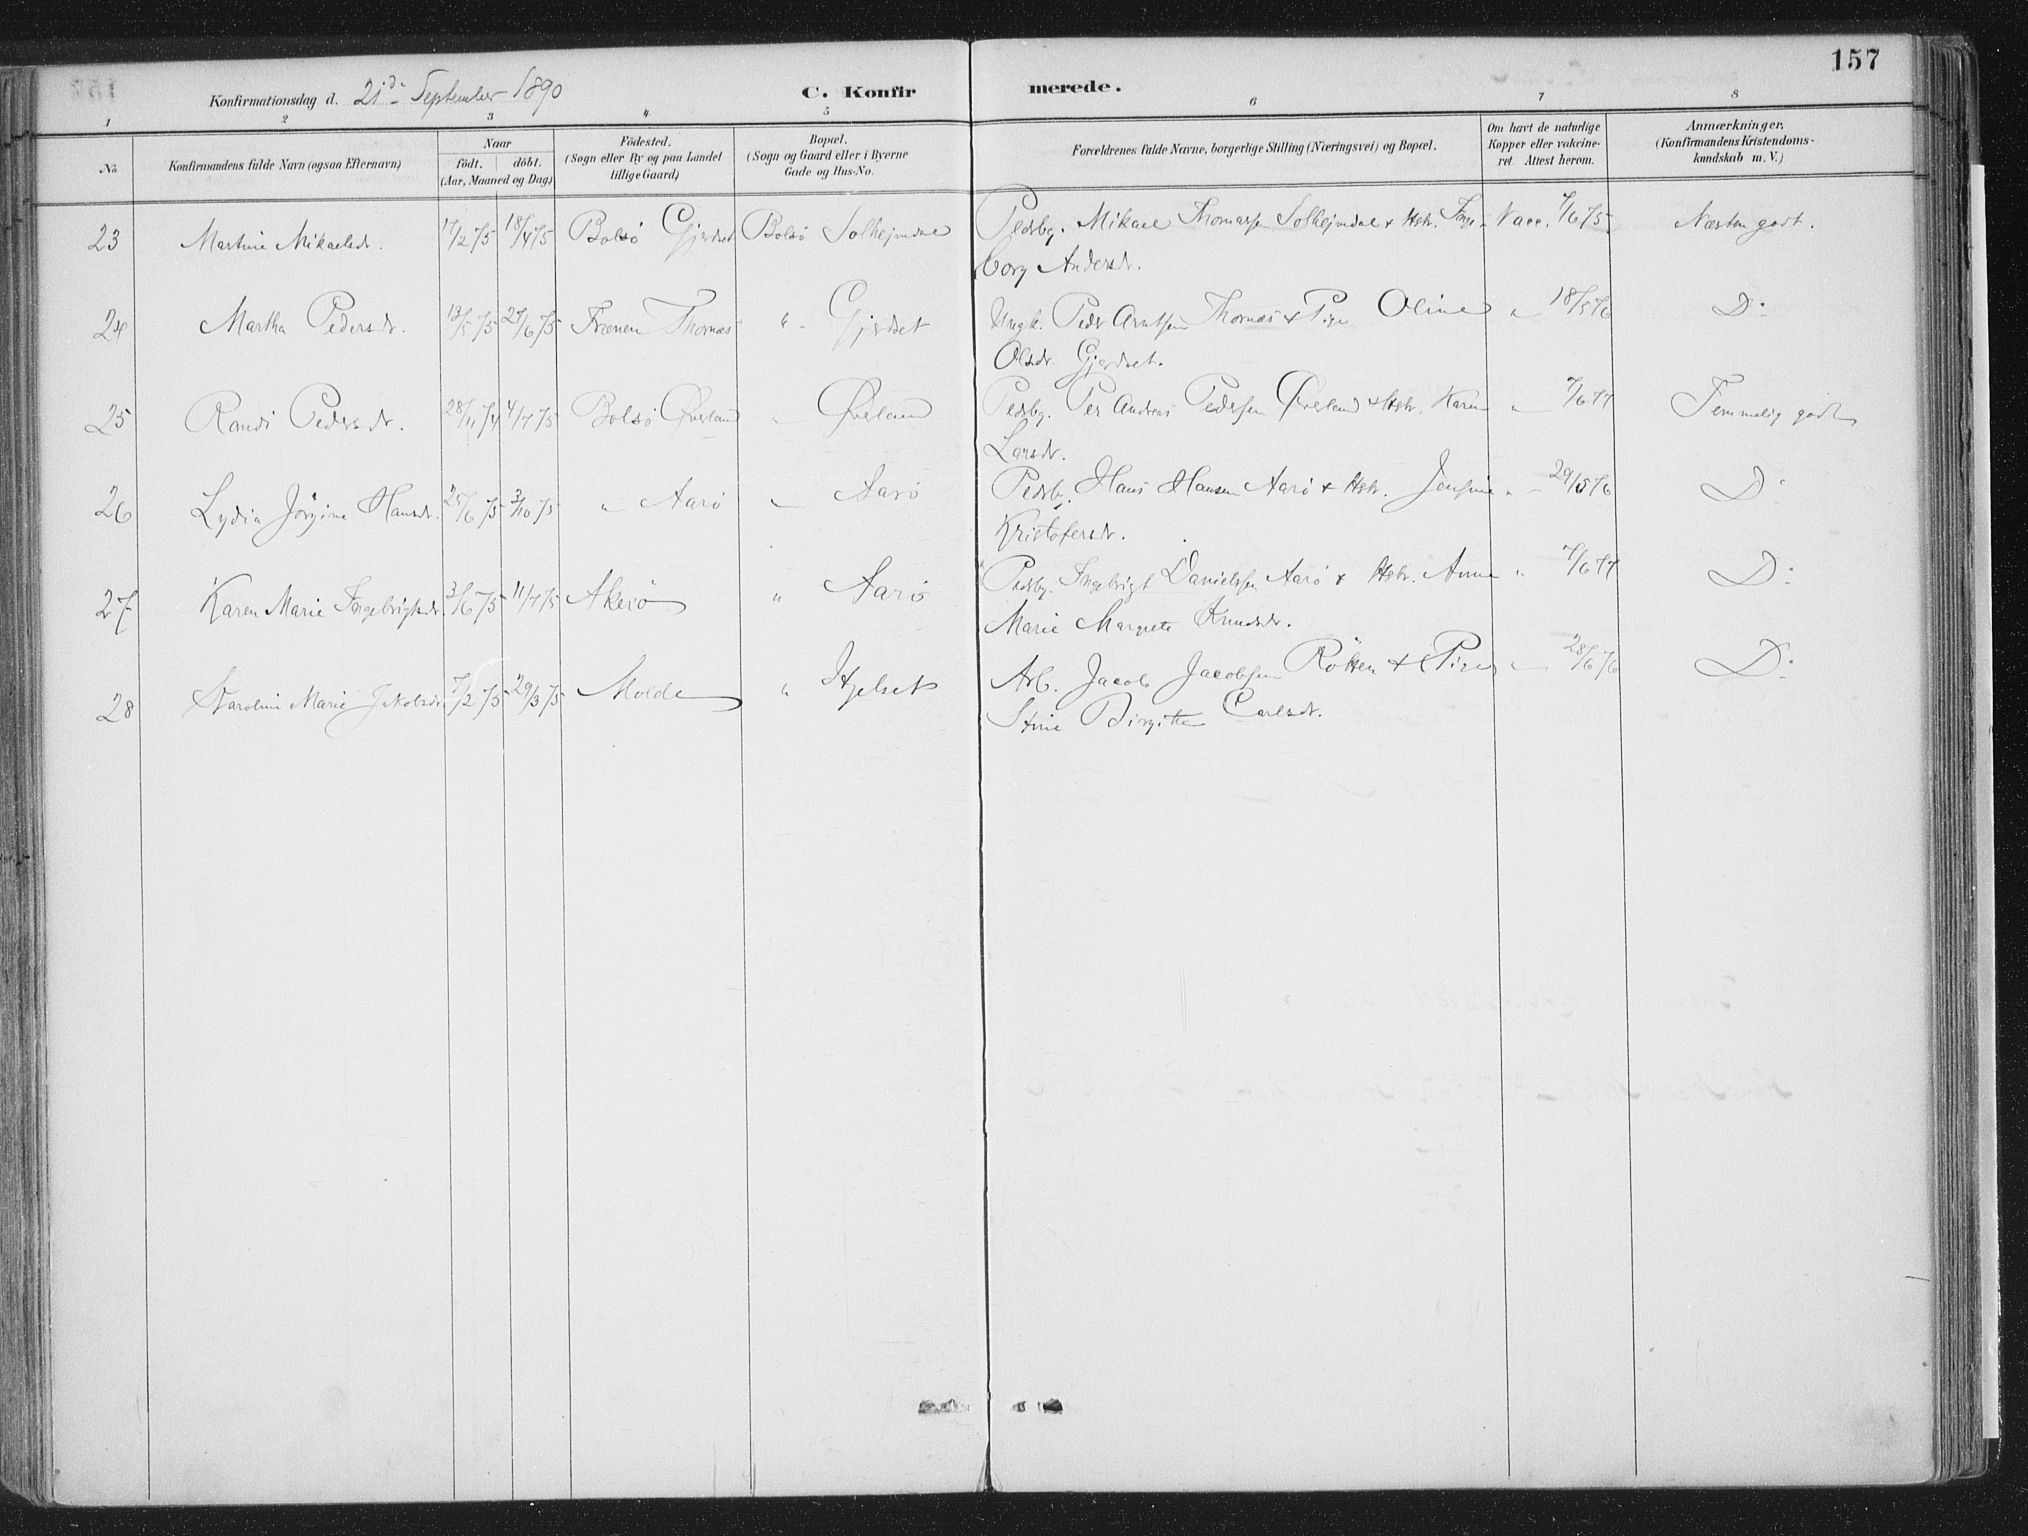 157
Konfirmationsdag d. 21de September 1890 C. Konfirmerede.
1 2 3 4 5 6 7 8
No Konfirmandens fulde Navn (ogsaa Efternavn) Naar födt. döbt. (Aar, Maaned og Dag) Födested. (Sogn eller By og paa Landet tillige Gaard) Bopæl. (Sogn og Gaard eller i Byerne Gade og Hus-No. Forældrenes fulde Navne, borgerlige Stilling (Næringsvei) og Bopæl. Om havt de naturlige Kopper eller vakcineret. Attest herom. Anmærkninger. (Konfirmandens Kristendomskundskab m. V.)
23 Martine Mikaelsdr. 17/2 75 18/4 75 Bolsö Gjerdset Bolsö Solhejmdal Pladsbg. Mikael Thomassen Solhejmdal & Hstr. Inge- Vacc. 7/6 75. Næsten godt.
borg Andersdr.
24 Martha Pedersdr. 13/5 75 27/6 75 Frænen Thornæs " Gjerdset Ungk. Peder Arntsen Thornæs & Pige Oline " 18/5 76 Do
Olsdr. Gjerdset.
25 Randi Pedersdr. 28/11 74 4/7 75 Bolsö Överland " Överland Pladsbg. Per Andreas Pedersen Överland & Hstr. Karen " 7/6 77 Temmelig godt
Larsdr.
26 Lydia Jörgine Hansdr. 25/6 75 3/10 75 " Aarö " Aarö Pladsbg. Hans Hansen Aarö & Hstr. Jensine " 29/5 76 Do
Kristofersdr.
27 Karen Marie Ingebrigtsdr. 3/6 75 11/7 75 Akerö " Aarö Pladsbg. Ingebrigt Danielsen Aarö & Hstr. Anne " 7/6 77 Do
Marie Margrete Knudsdr.
28 Karoline Marie Jakobsdr. 7/2 75 29/3 75 Molde " Hjelset Arb. Jacob Jacobsen & Pige " 28/6 76 Do
Stine Birgitte Carlsdr.